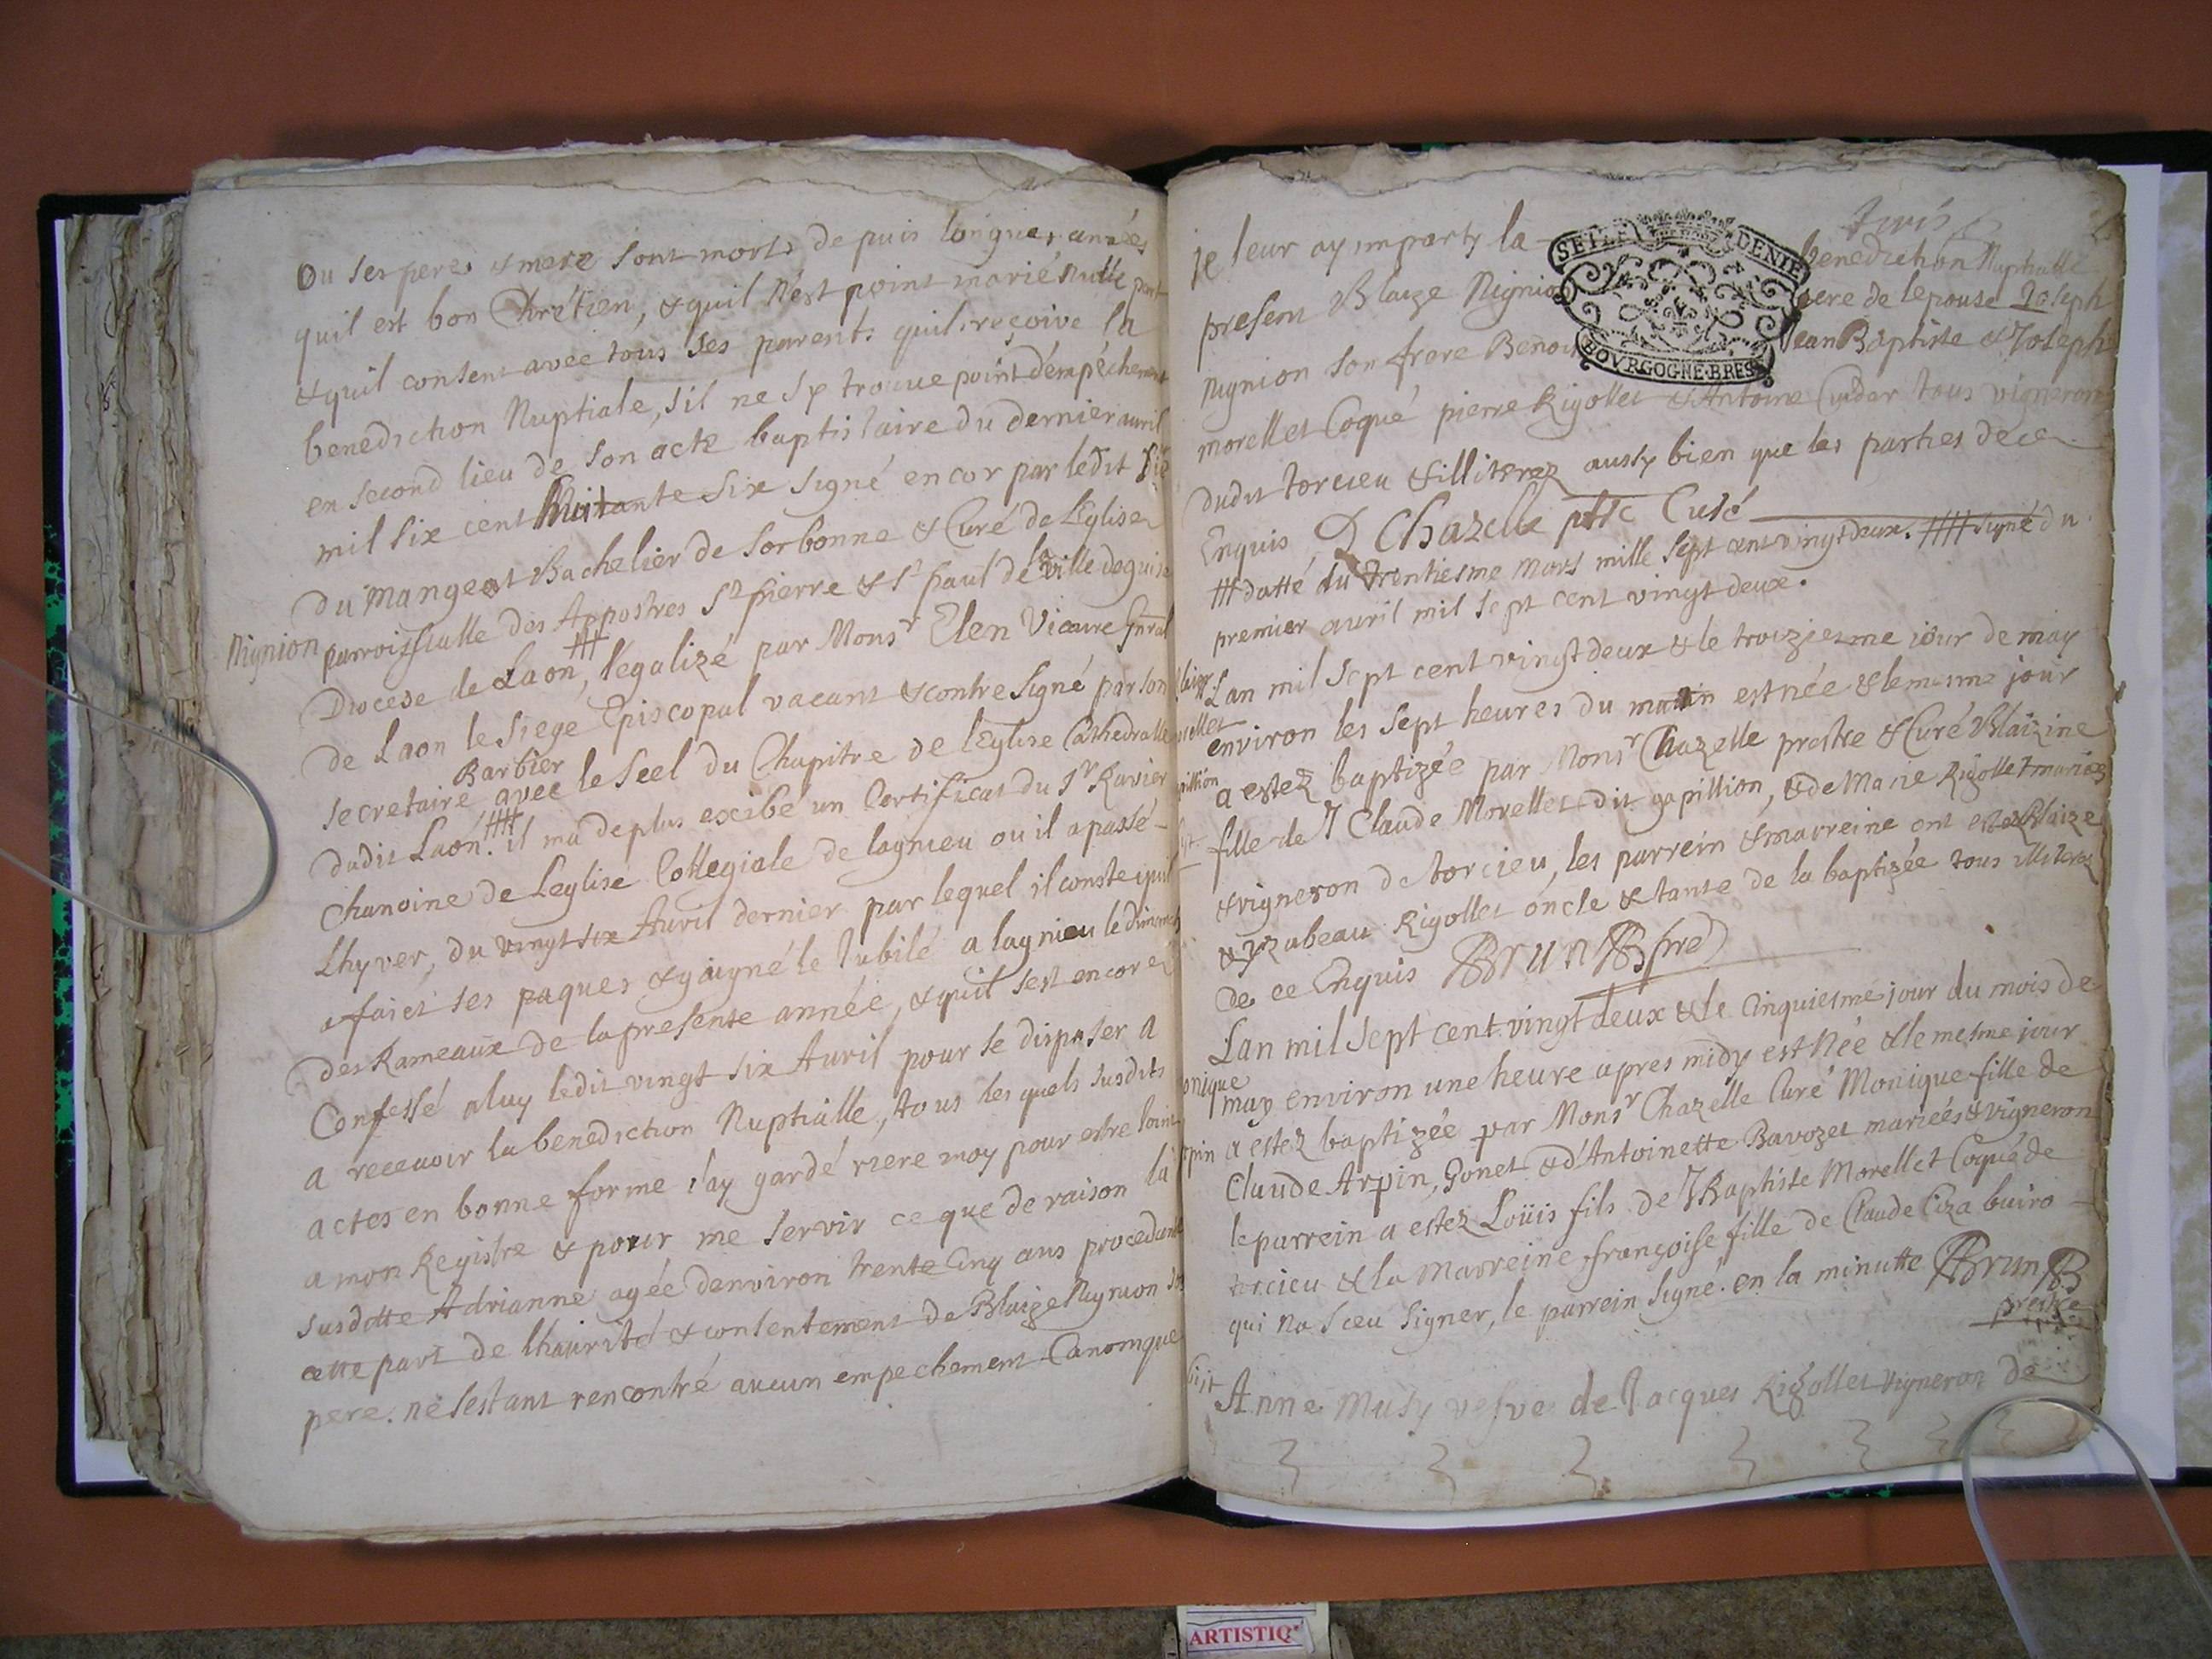 Ou ses peres & mere sont morts depuis longues années
quil est bon Chrétien, & quil n'est point marié nulle part
& quil consent avec tous ses parents quil reçoive la
benediction Nuptiale, sil ne sy trouue point d'empéchement
en second lieu de son acte baptistaire du dernier auril
mil six cent huitante six signé encor par ledit
du Mangeot Bachelier de Sorbonne & Curé de L'Eglise
Nignion
parroissialle des Appostres St pierre & St paul de la ville de guise
Diocese de Laon, légalizé par Monsr Elen Vicaire
de Laon le siege Episcopal vacant & contre signé par son
secretaire Barbier avec le seel du Chapitre de lEglise Cathedralle
dudit Laon. il ma de plus exibé un Certificat du Sr Ravier
Chanoine de Leglise Collegiale de lagnieu ou il a passé
Lhyver, du vingt six Auril dernier par lequel il conste quil
a faict ses paques & gaigné le Jubilé a lagnieu le dimanche
des Rameaux de la presente année, & quil sest encore
Confessé a luy ledit vingt six Auril pour se disposer a
a receuoir la benediction Nuptialle, tous les quels susdits
actes en bonne forme j'ay gardé riere moy pour estre joint
a mon Registre & pour me servir ce que de raison la
susditte Adrianne agée denviron trente Cinq ans procedante
cette part de lhautité & consentement de Blaize Nignion son
pere. ne sestant rencontré aucun empechement Canonique
je leur ay imparty la benediction Nuptialle
SEILE DENIE
BOVRGOGNE·BRES
present Blaize Nignion pere de lepouse Joseph
Nignion son frere Benoit Jean Baptiste & Joseph
morellet Coqué pierre Rigollet & Antoine Cudar tous vignerons
dudit torcieu & illiterez aussy bien que les parties de ce
Enquis D Chazelle ptre Curé
datté du trentiesme Mars mille sept cent vingt deux. signé du
premier auril mil sept cent vingt deux.
Lan mil sept cent vingt deux & le troizjesme jour de may
environ les sept heures du matin est née & le mesme jour
a estez baptizée par Monsr Chazelle prestre & Curé Blaizine
fille de J Claude Morellet dit gapillion, & de Marie Rigollet mariés
& vigneron de torcieu, les parrein & marreine ont estez Blaize
& yzabeau Rigollet oncle & tante de la baptizée tous illiterez
de ce Enquis BRUN pre
Lan mil sept cent vingt deux & le Cinquiesme jour du mois de
may environ une heure apres midy est Née & le mesme jour
a estez baptizée par Monsr Chazelle Curé Monique fille de
Claude Arpin, Gonet & d'Antoinette Bavozet mariéés & vigneron
le parrein a estez Loüis fils de J Baptiste Morellet Coqué de
torcieu & la Marreine françoise fille de Claude Ciza buiro
qui na sceu signer, le parrein signé. en la minutte Brun
prestre
Anne Musy vefve de Jacques Rigollet vigneron de
ARTISTIQ